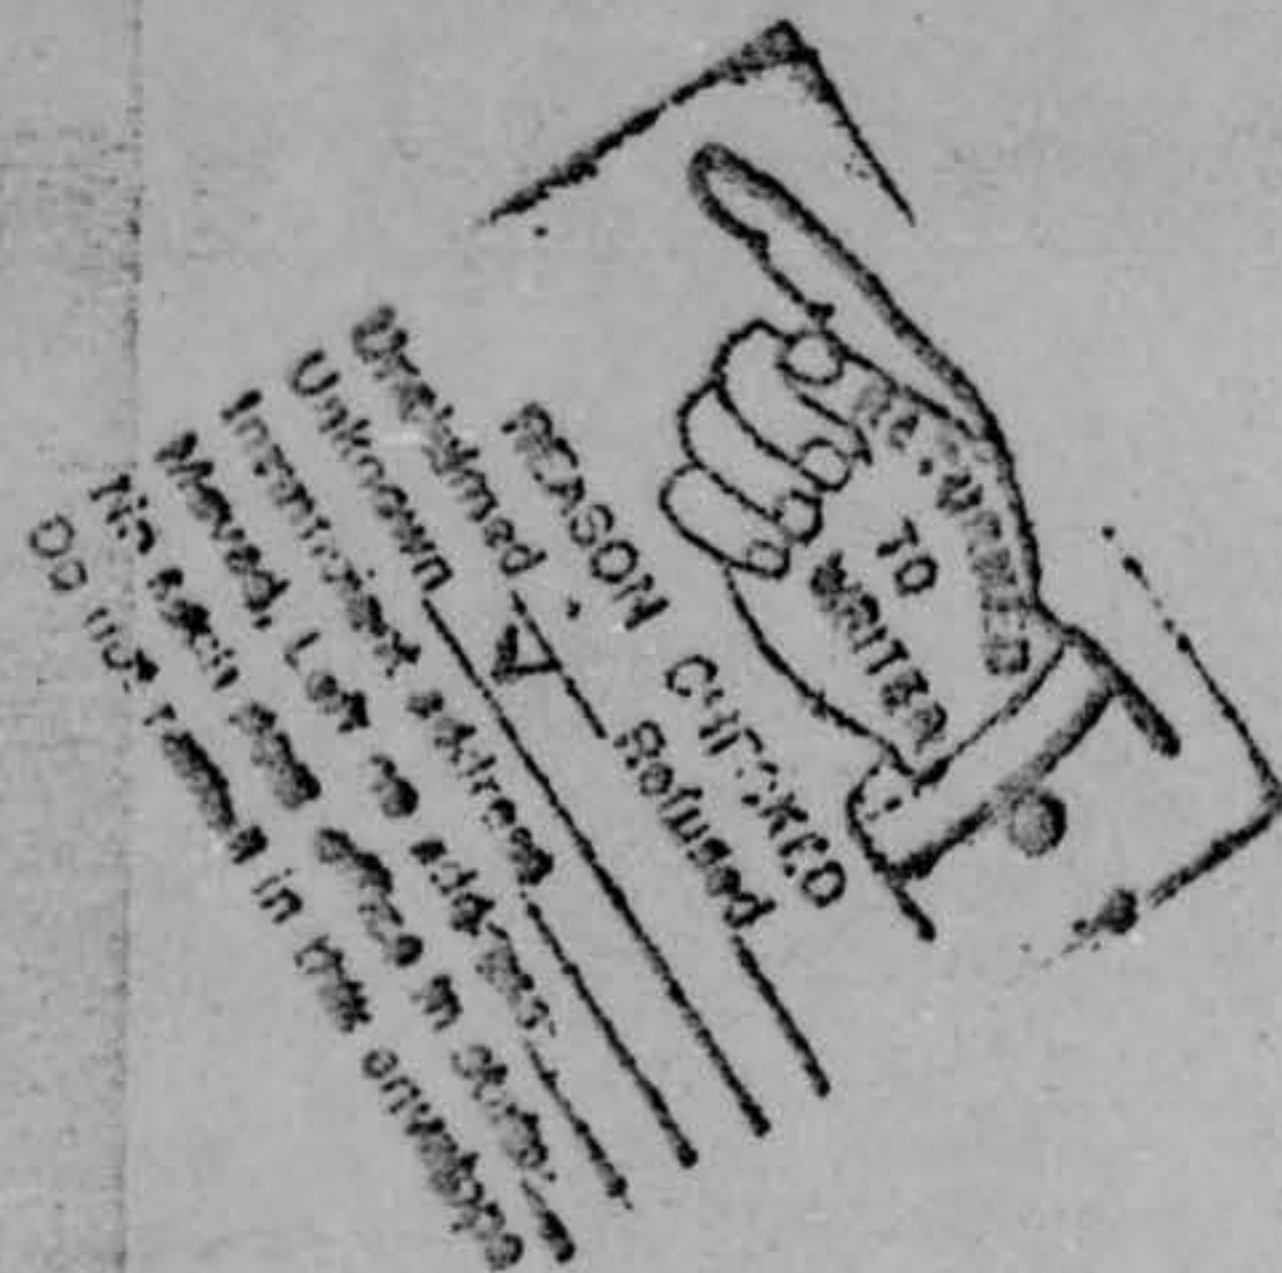 RETURNED
TO
WRITER
REASON CHECKED
Unclaimed Refused
Unknown
Insufficient address
Moved, Left no address
No such office in state
Do not remail in this envelope